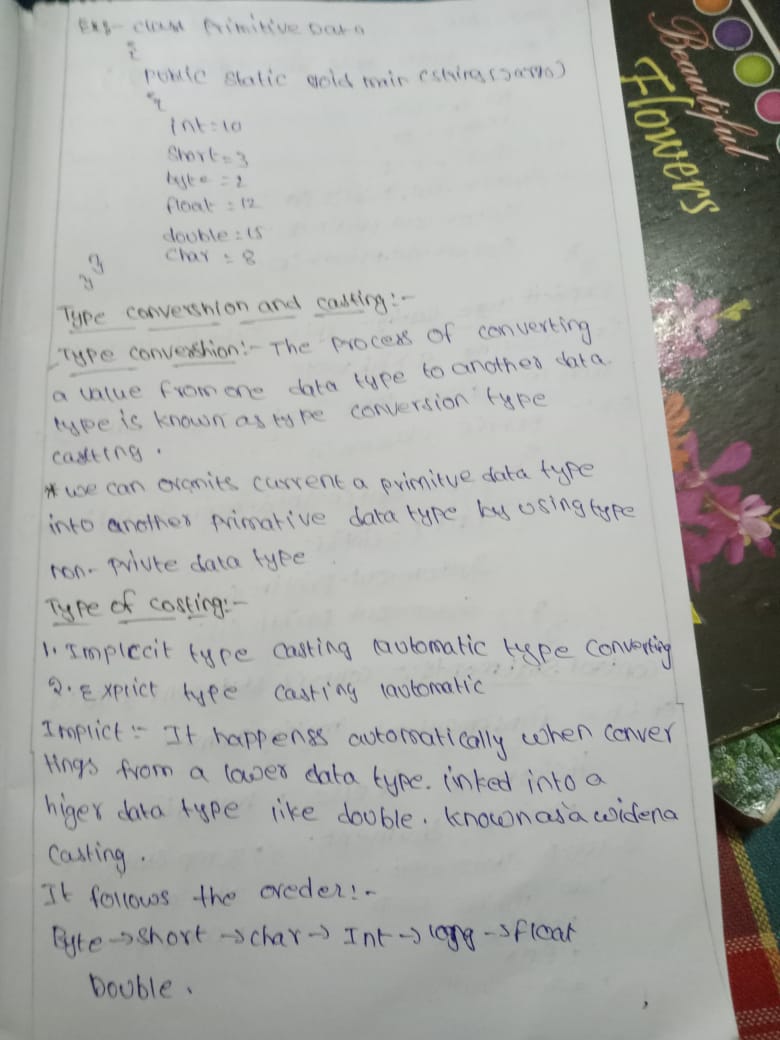 Ex:- class Primitive Data
{
public static void main (String[] args)
{
int = 10
Short = 3
byte = 2
float = 12
double = 15
Char = 8
}
}
Type convershion and casting:-
Type convershion:- The Process of converting
a value from one data type to another data
type is known as type conversion type
casting.
* we can current a primitve data type
into another primative data type by using type
non- privte data type
Type of costing:-
1. Implecit type casting (automatic type Converting
2. Explict type casting (automatic
Implict:- It happenss automatically when conver
tings from a lower data type. inked into a
higer data type like double. known as a widena
Casting.
It follows the oreder:-
Byte → Short → char → Int → long → float
Double.
Beautiful
Flowers